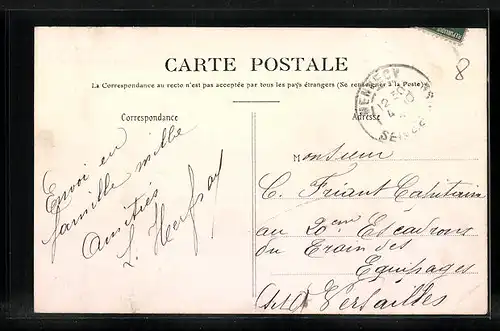 CARTE POSTALE
La Correspondance au recto n'est pas acceptée par tous les pays étrangers (Se renseigner à la Poste)
Correspondance
Adresse
8
MENNECY
12-50
4
SEINE
Envoi en
famille mille
Amitiés
Monsieur
C. Friant Capitaine
au 20em Escadrons
du Train des
Equipages
Versailles